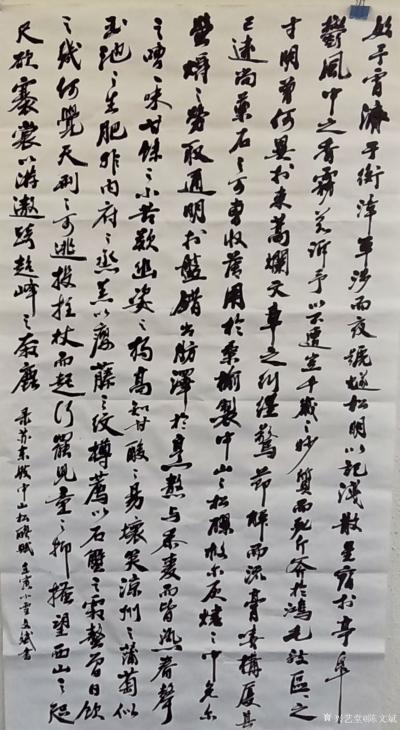 始予宵济于衡漳军涉而夜號燧松明以记浅散星宿于亭皋
鬱風中之香霧若诉予以不遭豈千歲之妙質而死斤斧於鴻毛效區區之
寸明曾何異於束蒿爛文章之纠缠驚節解而流膏嗟構厦其
已遠尚藥石之可曹收薄用於桑榆製中山之松醪救尔灰燼之中免尔
螢爝之勞取通明於盤錯出肪澤於烹熬與黍麦而皆熟沸春聲
之嘈嘈味甘餘之小苦歎幽姿之獨高知甘酸之易壞笑凉州之蒲萄似
玉池之生肥非内府之烝羔以瘿藤之纹樽薦以石蟹之霜螯曾日饮
之幾何覺天刑之可逃投拄杖而起行罷兒童之抑搔望西山之咫
尺欲褰裳以游遨跨超峰之奔鹿
录苏东坡中山松醪赋 壬寅小雪文斌書
兴艺堂@陈文斌